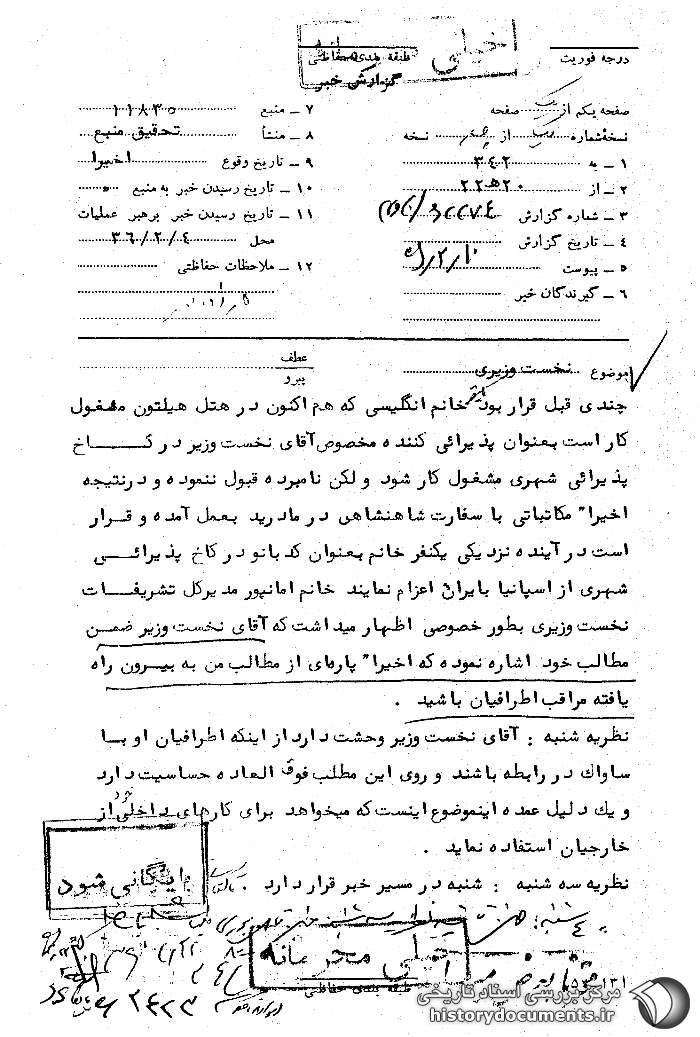 خیلی محرمانه
درجه فوریت
طبقه بندی حفاظتی
گزارش خبر
صفحه یکم از یک صفحه
نسخه شماره یک از نسخه
۱ ـ به ۳۴۲
۲ ـ از ۲۰ ه‍ ۲۲
۳ ـ شماره گزارش
۴ ـ تاریخ گزارش
۵ ـ پیوست
۶ ـ گیرندگان خبر
۷ ـ منبع ۱۱۸۳۵
۸ ـ منشأ تحقیق منبع
۹ ـ تاریخ وقوع اخیرا
۱۰ ـ تاریخ رسیدن خبر به منبع
۱۱ ـ تاریخ رسیدن خبر برهبر عملیات
محل ۳۶/۲/۴
۱۲ ـ ملاحظات حفاظتی
موضوع نخست وزیری
عطف
پیرو
چندی قبل قرار بود یکنفر خانم انگلیسی که هم اکنون در هتل هیلتون مشغول
کار است بعنوان پذیرائی کننده مخصوص آقای نخست وزیر در کاخ
پذیرائی شهری مشغول کار شود و لکن نامبرده قبول ننموده و درنتیجه
اخیرا" مکاتباتی با سفارت شاهنشاهی در مادرید بعمل آمده و قرار
است در آینده نزدیکی یکنفر خانم بعنوان کدبانو در کاخ پذیرائی
شهری از اسپانیا بایران اعزام نمایند خانم امانپور مدیرکل تشریفات
نخست وزیری بطور خصوصی اظهار میداشت که آقای نخست وزیر ضمن
مطالب خود اشاره نموده که اخیرا" پاره‌ای از مطالب من به بیرون راه
یافته مراقب اطرافیان باشید .
نظریه شنبه : آقای نخست وزیر وحشت دارد از اینکه اطرافیان او با
ساواک در رابطه باشند و روی این مطلب فوق العاده حساسیت دارد
و یک دلیل عمده اینموضوع اینست که میخواهد برای کارهای داخلی خود از
خارجیان استفاده نماید .
نظریه سه شنبه : شنبه در مسیر خبر قرار دارد .
بایگانی شود
خیلی محرمانه
طبقه بندی حفاظتی
مرکز بررسی اسناد تاریخی
historydocuments.ir